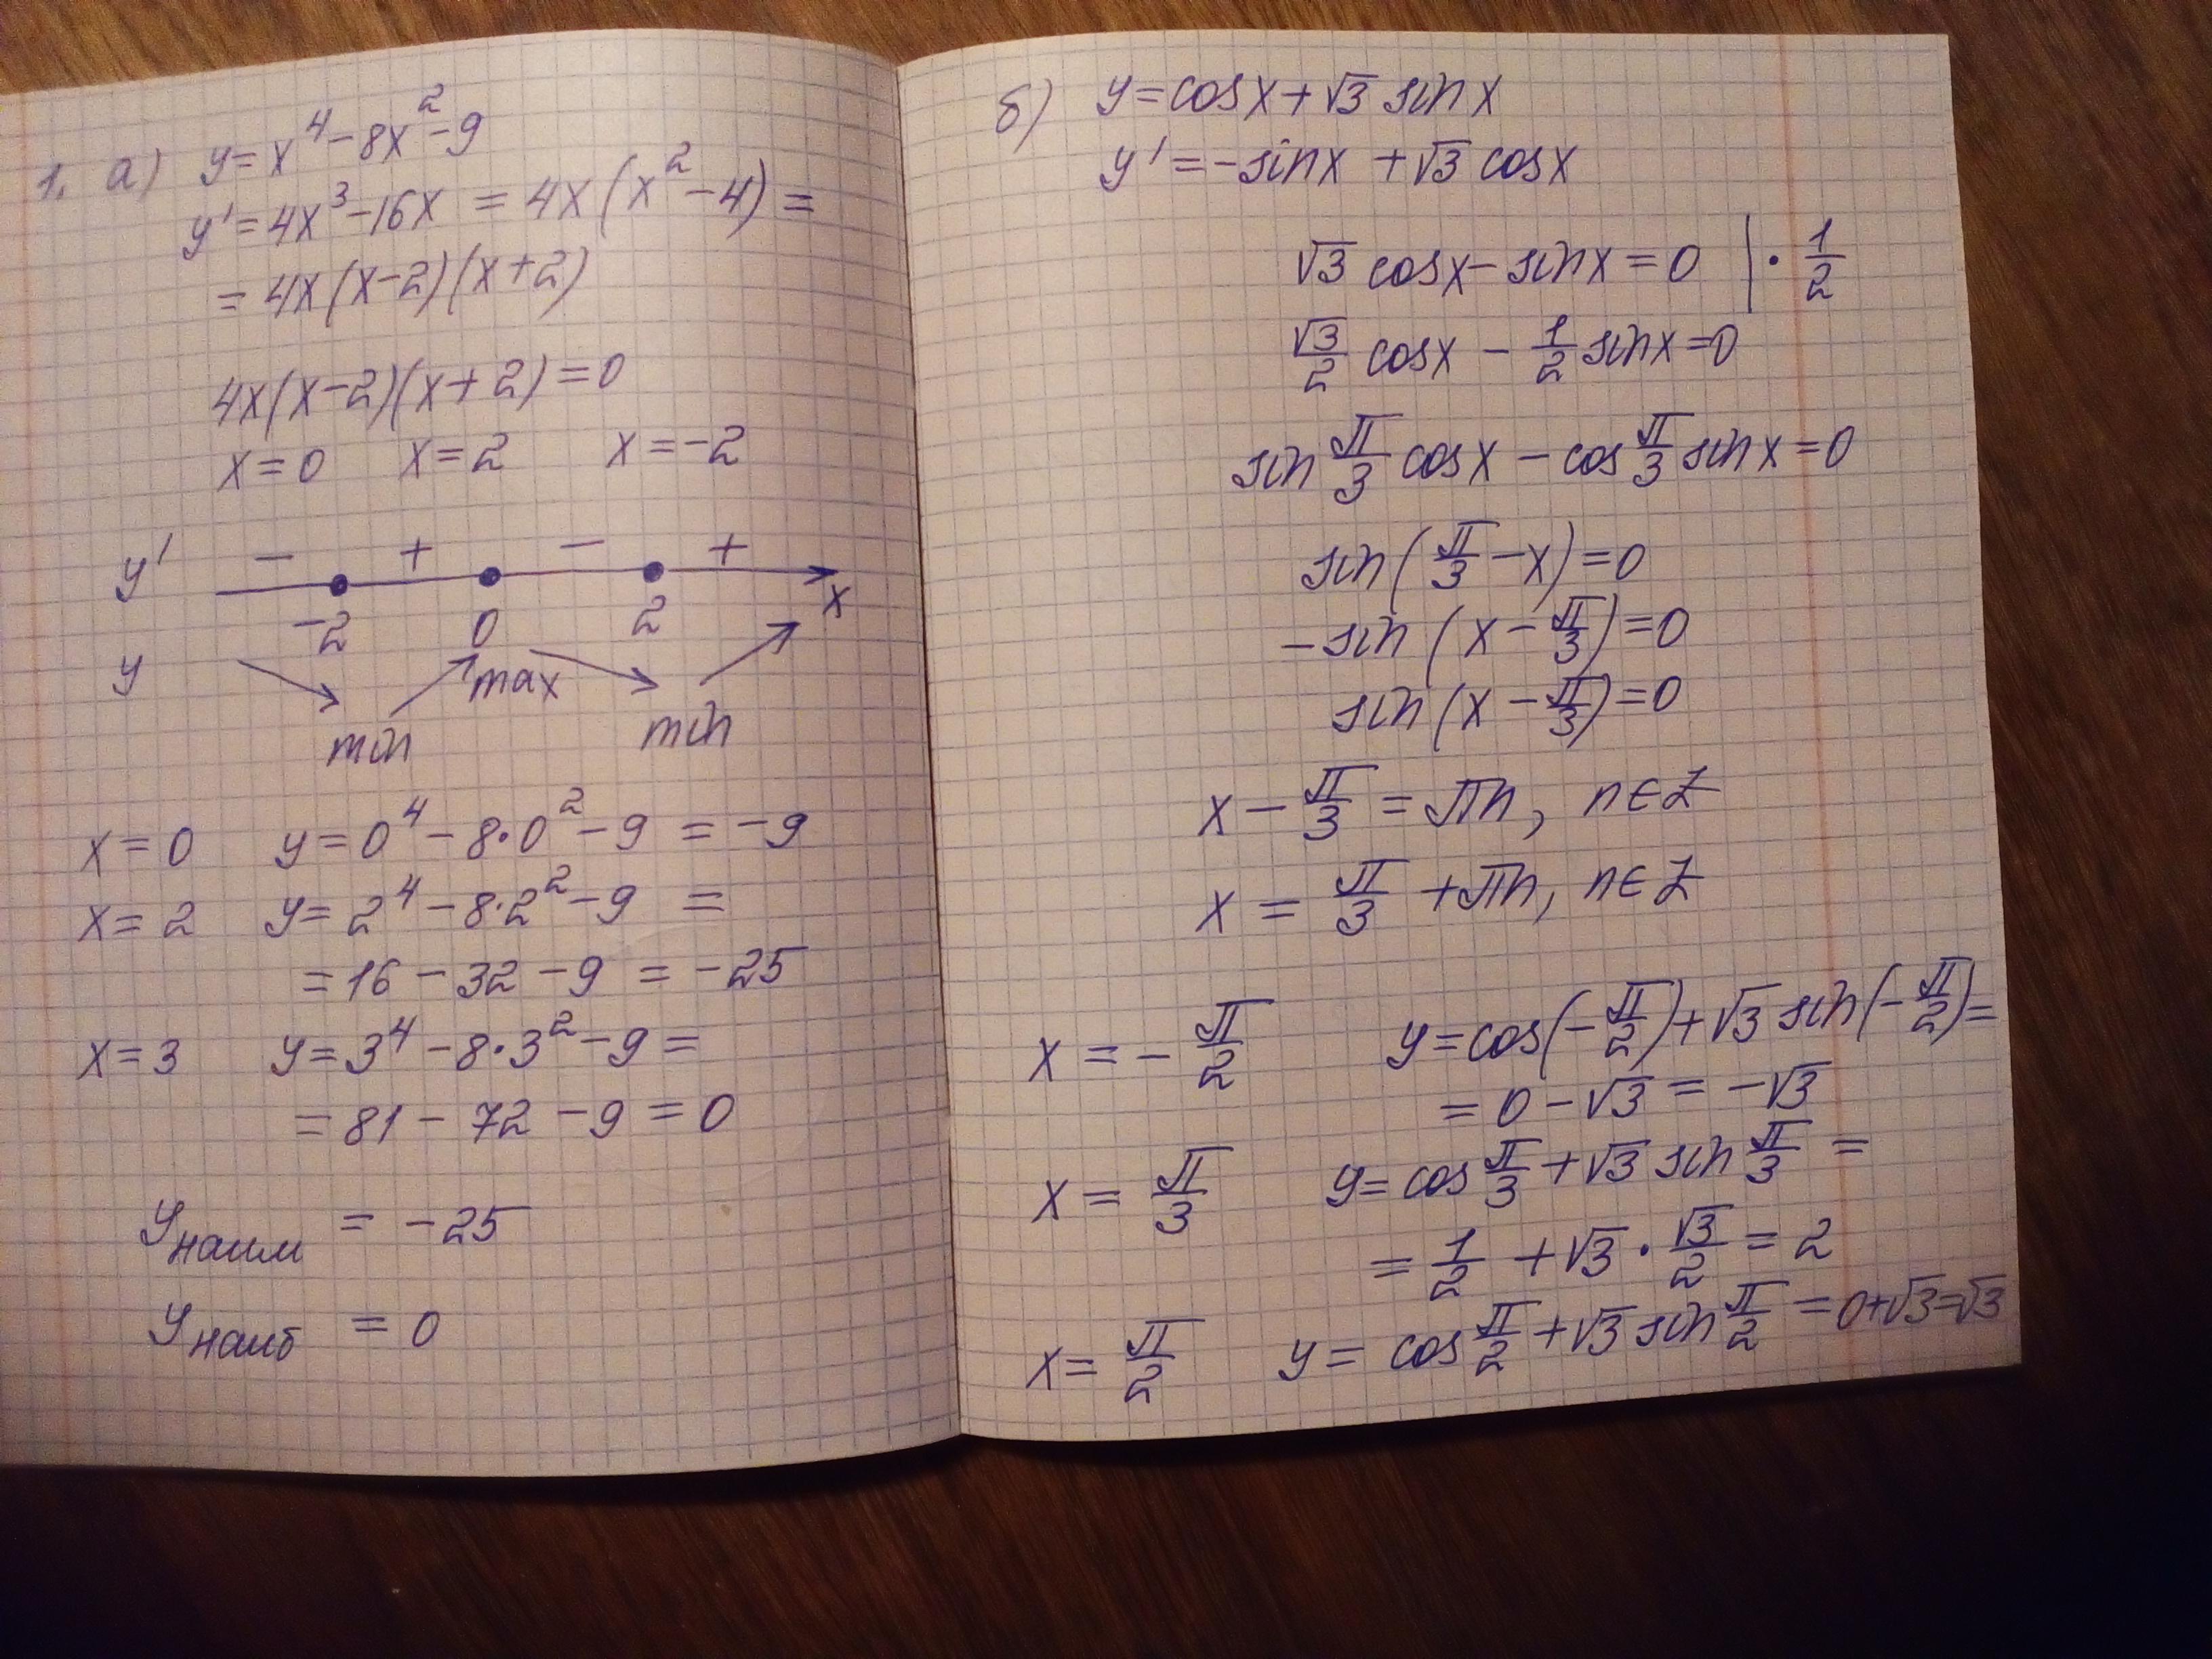 1. а) y = x⁴ - 8x² - 9
y' = 4x³ - 16x = 4x(x² - 4) =
= 4x(x-2)(x+2)
4x(x-2)(x+2) = 0
x = 0 x = 2 x = -2
y' - + - +
-2 0 2 x
y max
min min
x = 0 y = 0⁴ - 8·0² - 9 = -9
x = 2 y = 2⁴ - 8·2² - 9 =
= 16 - 32 - 9 = -25
x = 3 y = 3⁴ - 8·3² - 9 =
= 81 - 72 - 9 = 0
yнаим = -25
yнаиб = 0
б) y = cosx + √3 sinx
y' = -sinx + √3 cosx
√3 cosx - sinx = 0 | · 1/2
√3/2 cosx - 1/2 sinx = 0
sin π/3 cosx - cos π/3 sinx = 0
sin(π/3 - x) = 0
-sin(x - π/3) = 0
sin(x - π/3) = 0
x - π/3 = πn, n∈Z
x = π/3 + πn, n∈Z
x = -π/2 y = cos(-π/2) + √3 sin(-π/2) =
= 0 - √3 = -√3
x = π/3 y = cos π/3 + √3 sin π/3 =
= 1/2 + √3 · √3/2 = 2
x = π/2 y = cos π/2 + √3 sin π/2 = 0+√3=√3